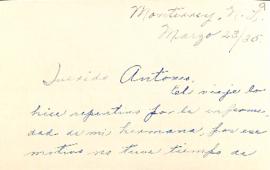 Monterrey, N. L. 9
Marzo 23/35.
Querido Antonio.
El viaje lo
hice repentino por la enferme
dad de mi hermana, por ese
motivo no tuve tiempo de